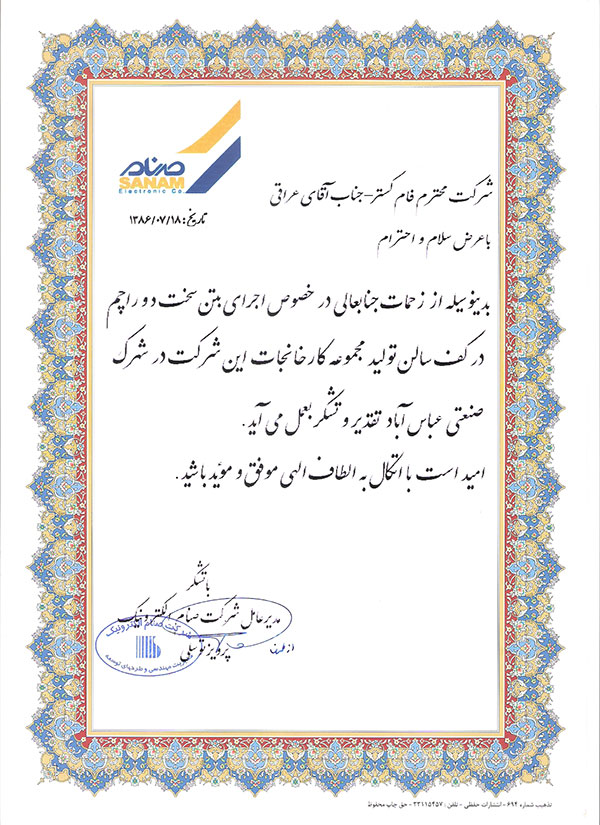 صنام
SANAM
Electronic Co.
تاریخ: ۱۳۸۶/۰۷/۱۸
شرکت محترم فام گستر - جناب آقای عراقی
با عرض سلام و احترام
بدینوسیله از زحمات جنابعالی در خصوص اجرای بتن سخت دوراچم
در کف سالن تولید مجموعه کارخانجات این شرکت در شهرک
صنعتی عباس آباد تقدیر و تشکر بعمل می آید.
امید است با اتکال به الطاف الهی موفق و موید باشید.
با تشکر
مدیرعامل شرکت صنام الکترونیک
پرویز توسلی
از طرف
شرکت صنام الکترونیک
مدیریت مهندسی و طرحهای توسعه
تذهیب شماره ۶۹۴ - انتشارات حفظی - تلفن: ۳۳۱۱۵۴۵۷ - حق چاپ محفوظ